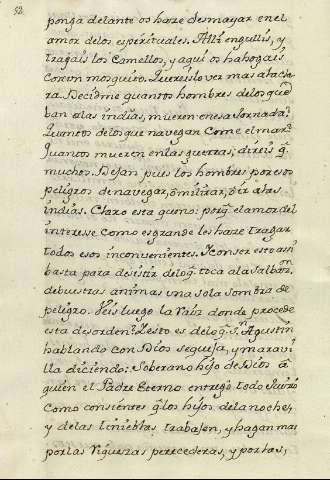 52
ponga delante os haze desmayar en el
amor delos espirituales. Alli engullis, y
tragais los Camellos, y aqui os ahogais
con un mosquito. Quereislo ver mas ala cla
ra. Decidme quantos hombres delos que
ban alas indias, mueren en esa Jornada?
Quantos delos que navegan Come el mar?
Quantos mueren en las guerras; direis q̃
muchos. Dejan pues los hombres por esos
peligros de navegar, ò militrar, ò ir alas
indias. Claro esta que no: porq̃ el amor del
interesse como es grande les haze tragar
todos esos inconvenientes. Y con ser esto asi
basta para desistir delo q̃ toca ala salbaz.on
de buestras animas una sola sombra de
peligro. Veis luego la raiz donde procede
esta desorden? Y esto es delo q̃ S.n Agustin
hablando con Dios se queja, y maravi
lla diciendo: Soberano hijo de Dios à
quien el Padre Eterno entregò todo Juizio
Como consientes q̃ los hijos dela noche,
y delas tinieblas trabajen, y hagan mas
por las riquezas perecederas, y por las,